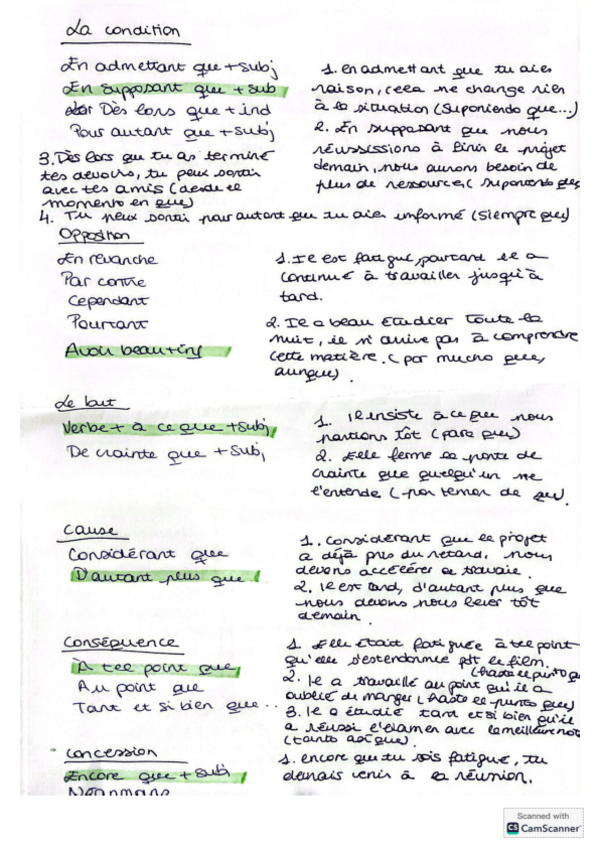 La condition
En admettant que + subj
En supposant que + sub
Dès lors que + ind
Pour autant que + subj
1. en admettant que tu aies
raison, cela ne change rien
à la situation (Suponiendo que...)
2. En supposant que nous
réussissions à finir le projet
demain, nous aurons besoin de
plus de ressource, (suponiendo que
3. Dès lors que tu as terminé
tes devoirs, tu peux sortir
avec tes amis (desde el
momento en que)
4. Tu peux sortir pour autant que tu aies informé (siempre que)
Opposition
En revanche
Par contre
Cependant
Pourtant
Avoir beau + inf
1. Il est fatigué, pourtant il a
continué à travailler jusqu'à
tard.
2. Il a beau étudier toute la
nuit, il n'arrive pas à comprendre
cette matière. (por mucho que,
aunque).
Le but
Verbe + à ce que + subj
De crainte que + subj
1. Il insiste à ce que nous
partions tôt (para que)
2. Elle ferme la porte de
crainte que quelqu'un ne
l'entende (por temor de que).
Cause
Considérant que
D'autant plus que
1. Considérant que le projet
a déjà pris du retard, nous
devons accélérer le travail.
2. Il est tard, d'autant plus que
nous devons nous lever tôt
demain.
Conséquence
À tel point que
Au point que
Tant et si bien que..
1. Elle était fatiguée à tel point
qu'elle s'est endormie le film.
(hasta el punto q
2. Il a travaillé au point qu'il a
oublié de manger (hasta el punto que)
3. Il a étudié tant et si bien qu'il
a réussi l'examen avec la meilleure not
(tanto así que).
Concession
Encore que + subj
1. encore que tu sois fatigué, tu
devrais venir à la réunion.
Scanned with
CS CamScanner